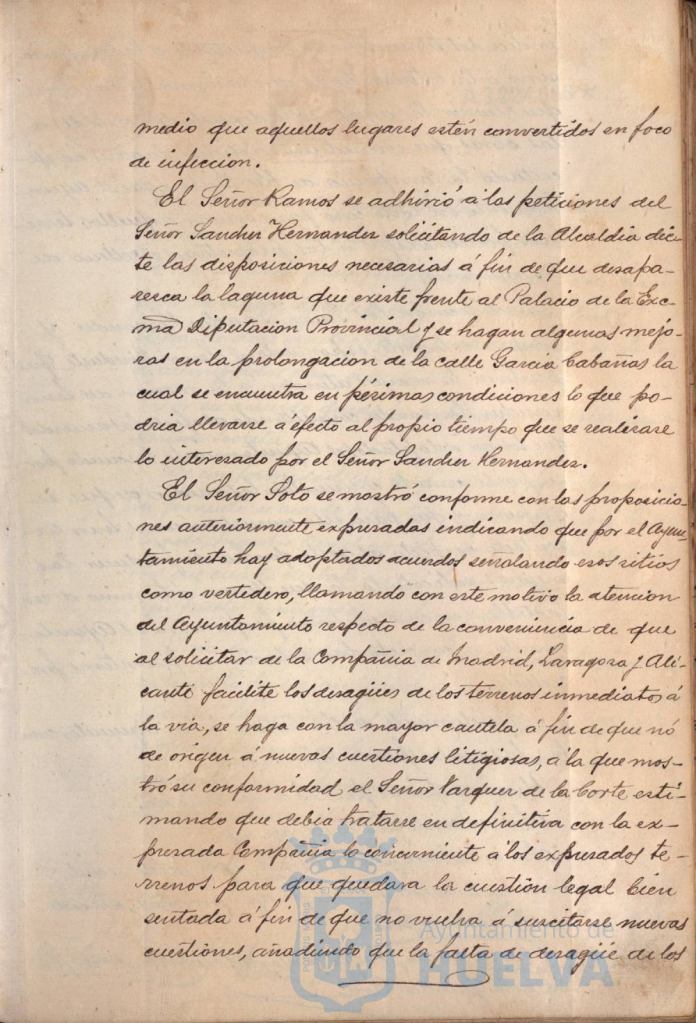 medio que aquellos lugares estén convertidos en foco
de infeccion.
El Señor Ramos se adhirió á las peticiones del
Señor Sanchez Hernandez solicitando de la Alcaldia dic-
te las disposiciones necesarias á fin de que desapa-
resca la laguna que existe frente al Palacio de la Exc-
ma Diputacion Provincial y se hagan algunas mejo-
ras en la prolongacion de la calle Garcia Cabañas la
cual se encuentra en pésimas condiciones lo que po-
dria llevarse á efecto al propio tiempo que se realizase
lo interesado por el Señor Sanchez Hernandez.
El Señor Soto se mostró conforme con las proposicio-
nes anteriormente expresadas indicando que por el Ayun-
tamiento hay adoptados acuerdos señalando esos sitios
como vertedero, llamando con este motivo la atencion
del Ayuntamiento respecto de la conveniencia de que
al solicitar de la Compañia de Madrid, Zaragoza y Ali-
cante facilite los desagües de los terrenos inmediatos á
la via, se haga con la mayor cautela á fin de que nó
de origen á nuevas cuestiones litigiosas, á la que mos-
tró su conformidad el Señor Vazquez de la Corte esti-
mando que debia tratarse en definitiva con la ex-
presada Compañia lo concerniente á los expresados te-
rrenos para que quedara la cuestion legal bien
sentada á fin de que no vuelva á suscitarse nuevas
cuestiones, añadiendo que la falta de desagüe de los
Ayuntamiento de
HUELVA